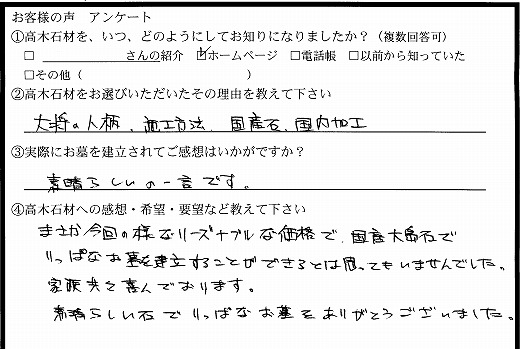 お客様の声　アンケート
①高木石材を、いつ、どのようにしてお知りになりましたか？（複数回答可）
□ ＿＿＿＿＿＿さんの紹介　☑ホームページ　□電話帳　□以前から知っていた
□その他（　　　　　　　　　　　　）
②高木石材をお選びいただいたその理由を教えて下さい
大将の人柄、施工方法、国産石、国内加工
③実際にお墓を建立されてご感想はいかがですか？
素晴らしいの一言です。
④高木石材への感想・希望・要望など教えて下さい
まさか今回の様なリーズナブルな価格で、国産大島石で
りっぱなお墓を建立することができるとは思ってもいませんでした。
家族共々喜んでおります。
素晴らしい石でりっぱなお墓をありがとうございました。